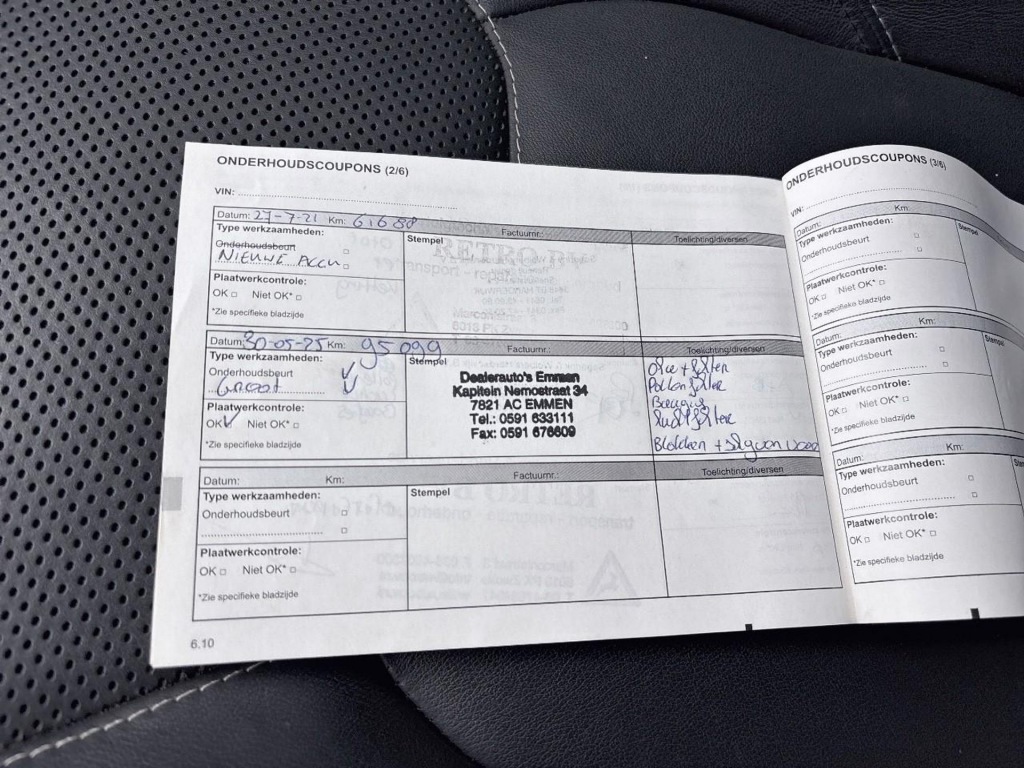 ONDERHOUDSCOUPONS (2/6)
VIN:
Datum: 27-7-21 Km: 61680 Factuurnr.: Toelichting/diversen
Type werkzaamheden: Stempel
Onderhoudsbeurt
NIEUWE ACCU
Plaatwerkcontrole:
OK Niet OK*
*Zie specifieke bladzijde
Datum: 30-05-25 Km: 95 099 Factuurnr.: Toelichting/diversen
Type werkzaamheden: Stempel
Onderhoudsbeurt
Groot
Plaatwerkcontrole:
OK Niet OK*
*Zie specifieke bladzijde
Dealerauto's Emmen
Kapitein Nemostraat 34
7821 AC EMMEN
Tel.: 0591 633111
Fax: 0591 676609
Olie + filter
Pollenfilter
Bougies
Luchtfilter
Datum: Km: Factuurnr.: Toelichting/diversen
Type werkzaamheden: Stempel
Onderhoudsbeurt
Plaatwerkcontrole:
OK Niet OK*
*Zie specifieke bladzijde
6.10
ONDERHOUDSCOUPONS (3/6)
VIN:
Datum: Km:
Type werkzaamheden: Stempel
Onderhoudsbeurt
Plaatwerkcontrole:
OK Niet OK*
*Zie specifieke bladzijde
Datum: Km:
Type werkzaamheden: Stempel
Onderhoudsbeurt
Plaatwerkcontrole:
OK Niet OK*
*Zie specifieke bladzijde
Datum: Km:
Type werkzaamheden: Stempel
Onderhoudsbeurt
Plaatwerkcontrole:
OK Niet OK*
*Zie specifieke bladzijde